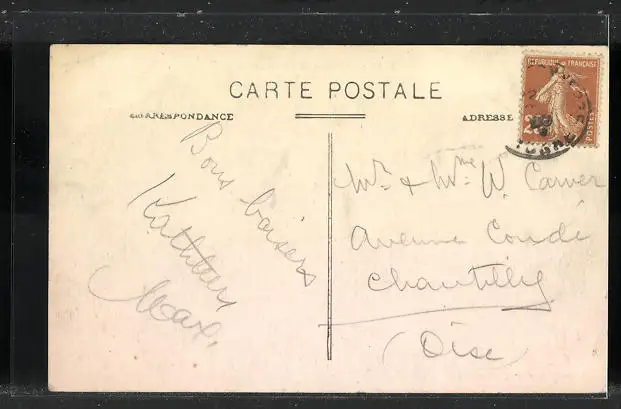 CARTE POSTALE
CORRESPONDANCE
ADRESSE
RÉPUBLIQUE FRANÇAISE
POSTES
Bons baisers
Kathleen
Max.
Mr. & Mme W. Carver
Avenue Condé
Chantilly
(Oise)